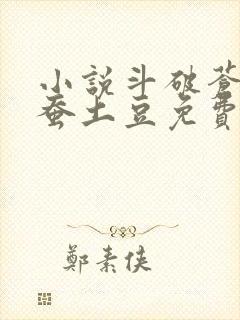 小說斗破蒼
蚕土豆免費
鄭素侠